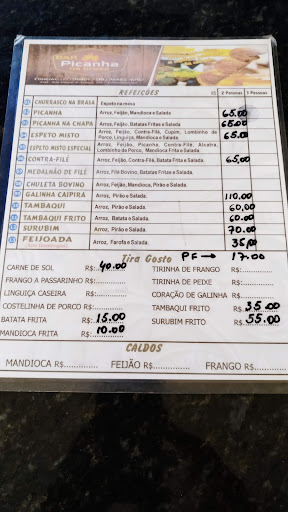 Bar
Picanha
REFEIÇÕES R$ 2 Pessoas 3 Pessoas
CHURRASCO NA BRASA Espeto na mesa
PICANHA Arroz, Feijão, Mandioca e Salada 65.00
PICANHA NA CHAPA Arroz, Feijão, Batatas Fritas e Salada 65.00
ESPETO MISTO Arroz, Feijão, Contra-Filé, Cupim, Lombinho de Porco, Linguiça, Mandioca e Salada. 65.00
ESPETO MISTO ESPECIAL Arroz, Feijão, Picanha, Contra-Filé, Alcatra, Lombinho de Porco, Mandioca Frita e Salada.
CONTRA-FILÉ Arroz, Feijão, Contra-Filé, Batata Frita e Salada. 65,00
MEDALHÃO DE FILÉ Arroz, Filé Bovino, Batatas Fritas e Salada.
CHULETA BOVINO Arroz, Feijão, Mandioca, Pirão e Salada.
GALINHA CAIPIRA Arroz, Pirão e Salada. 110,00
TAMBAQUI Arroz, Pirão e Salada. 60,00
TAMBAQUI FRITO Arroz, Batata e Salada. 60.00
SURUBIM Arroz, Pirão e Salada. 70.00
FEIJOADA Arroz, Farofa e Salada. 35,00
Tira Gosto PF → 17.00
CARNE DE SOL R$: 40.00 TIRINHA DE FRANGO R$:
FRANGO A PASSARINHO R$: TIRINHA DE PEIXE R$:
LINGUIÇA CASEIRA R$: CORAÇÃO DE GALINHA R$:
COSTELINHA DE PORCO R$: TAMBAQUI FRITO R$: 35.00
BATATA FRITA R$: 15.00 SURUBIM FRITO R$: 55.00
MANDIOCA FRITA R$: 10.00
CALDOS
MANDIOCA R$: FEIJÃO R$: FRANGO R$: